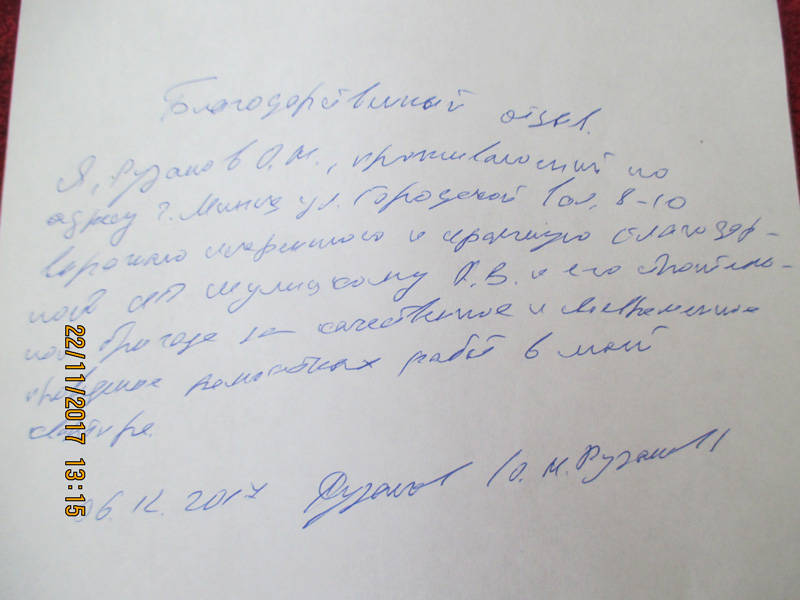 Благодарственный отзыв.
Я, Рузанов О.М., проживающий по
адресу г. Минск ул. Городской Вал, 8-10
выражаю искреннюю и огромную благодар-
ность ИП Шулицкому А.В. и его строитель-
ной бригаде за качественное и своевременное
проведение ремонтных работ в моей
квартире.
06.12.2017 Рузанов (О.М. Рузанов)
22/11/2017 13:15